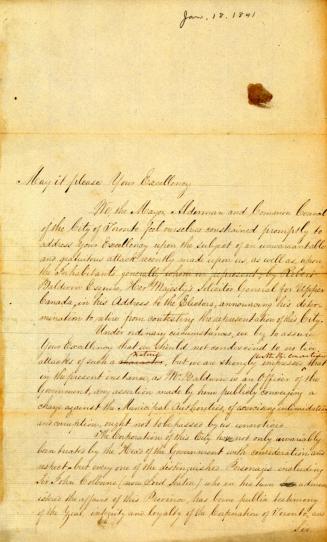 Jan. 18. 1841
May it please Your Excellency
We, the Mayor, Alderman and Common Council
of the City of Toronto feel ourselves constrained promptly to
address Your Excellency upon the subject of an unwarrantable
and gratuitous attack recently made upon us, as well as upon
the Inhabitants generally whom we represent, by Robert
Baldwin Esquire, Her Majesty's Solicitor General for Upper
Canada, in his Address to the Electors, announcing his deter-
mination to retire from contesting the representation of this City.
Under ordinary circumstances, we beg to assure
Your Excellency that we should not condescend to notice
nature
attacks of such a character, but we are strongly impressed that
in the present instance, as Mr Baldwin is an Officer of the
Government, any assertion made by him publicly conveying a
charge against the Municipal Authorities, of exercising intimidation
and corruption, ought not to be passed by us unnoticed.
The Corporation of this City has not only invariably
been treated by the Head of the Government with consideration and
respect but every one of the distinguished Personages including
Sir John Colborne (now Lord Seaton) who in his turn
istered the affairs of this Province, has borne public testimony
of the Zeal, integrity and loyalty of the Corporation of Toronto, and